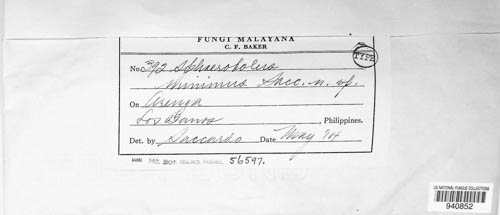 FUNGI MALAYANA
C. F. BAKER
TYPE
No. 392 Sphaerobolus
minimus Sacc. n. sp.
On Arenga
Los Banos, Philippines.
Det. by Saccardo Date May '14
MO. BOT. GARD. HERB. 56597.
US NATIONAL FUNGUS COLLECTIONS
940852